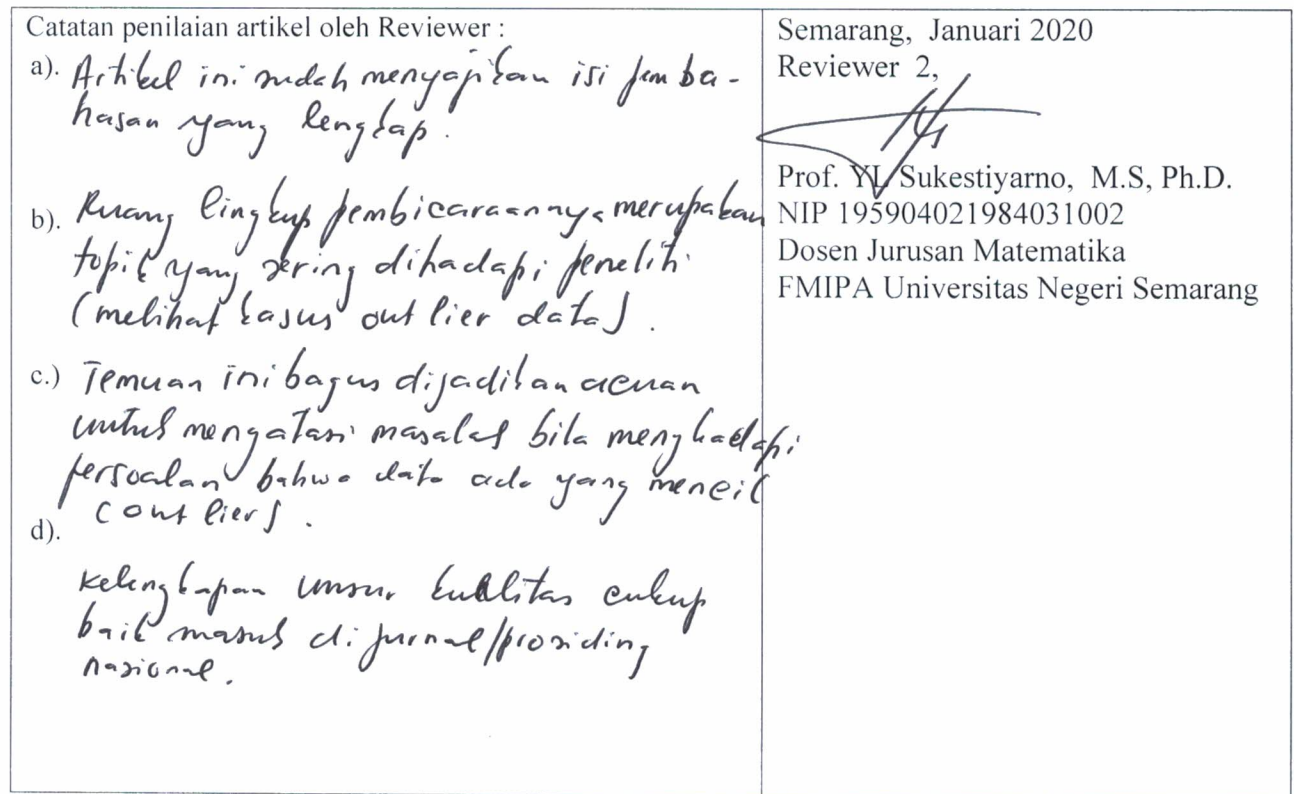 Catatan penilaian artikel oleh Reviewer :
a). Artikel ini sudah menyajikan isi pemba-
hasan yang lengkap.
b). Ruang lingkup pembicaraannya merupakan
topik yang sering dihadapi peneliti
(melihat kasus outlier data).
c.) Temuan ini bagus dijadikan acuan
untuk mengatasi masalah bila menghadapi
persoalan bahwa data ada yang mencil
(outlier).
d).
Kelengkapan unsur kualitas cukup
baik masuk di jurnal/prosiding
nasional.
Semarang, Januari 2020
Reviewer 2,
Prof. YL Sukestiyarno, M.S, Ph.D.
NIP 195904021984031002
Dosen Jurusan Matematika
FMIPA Universitas Negeri Semarang